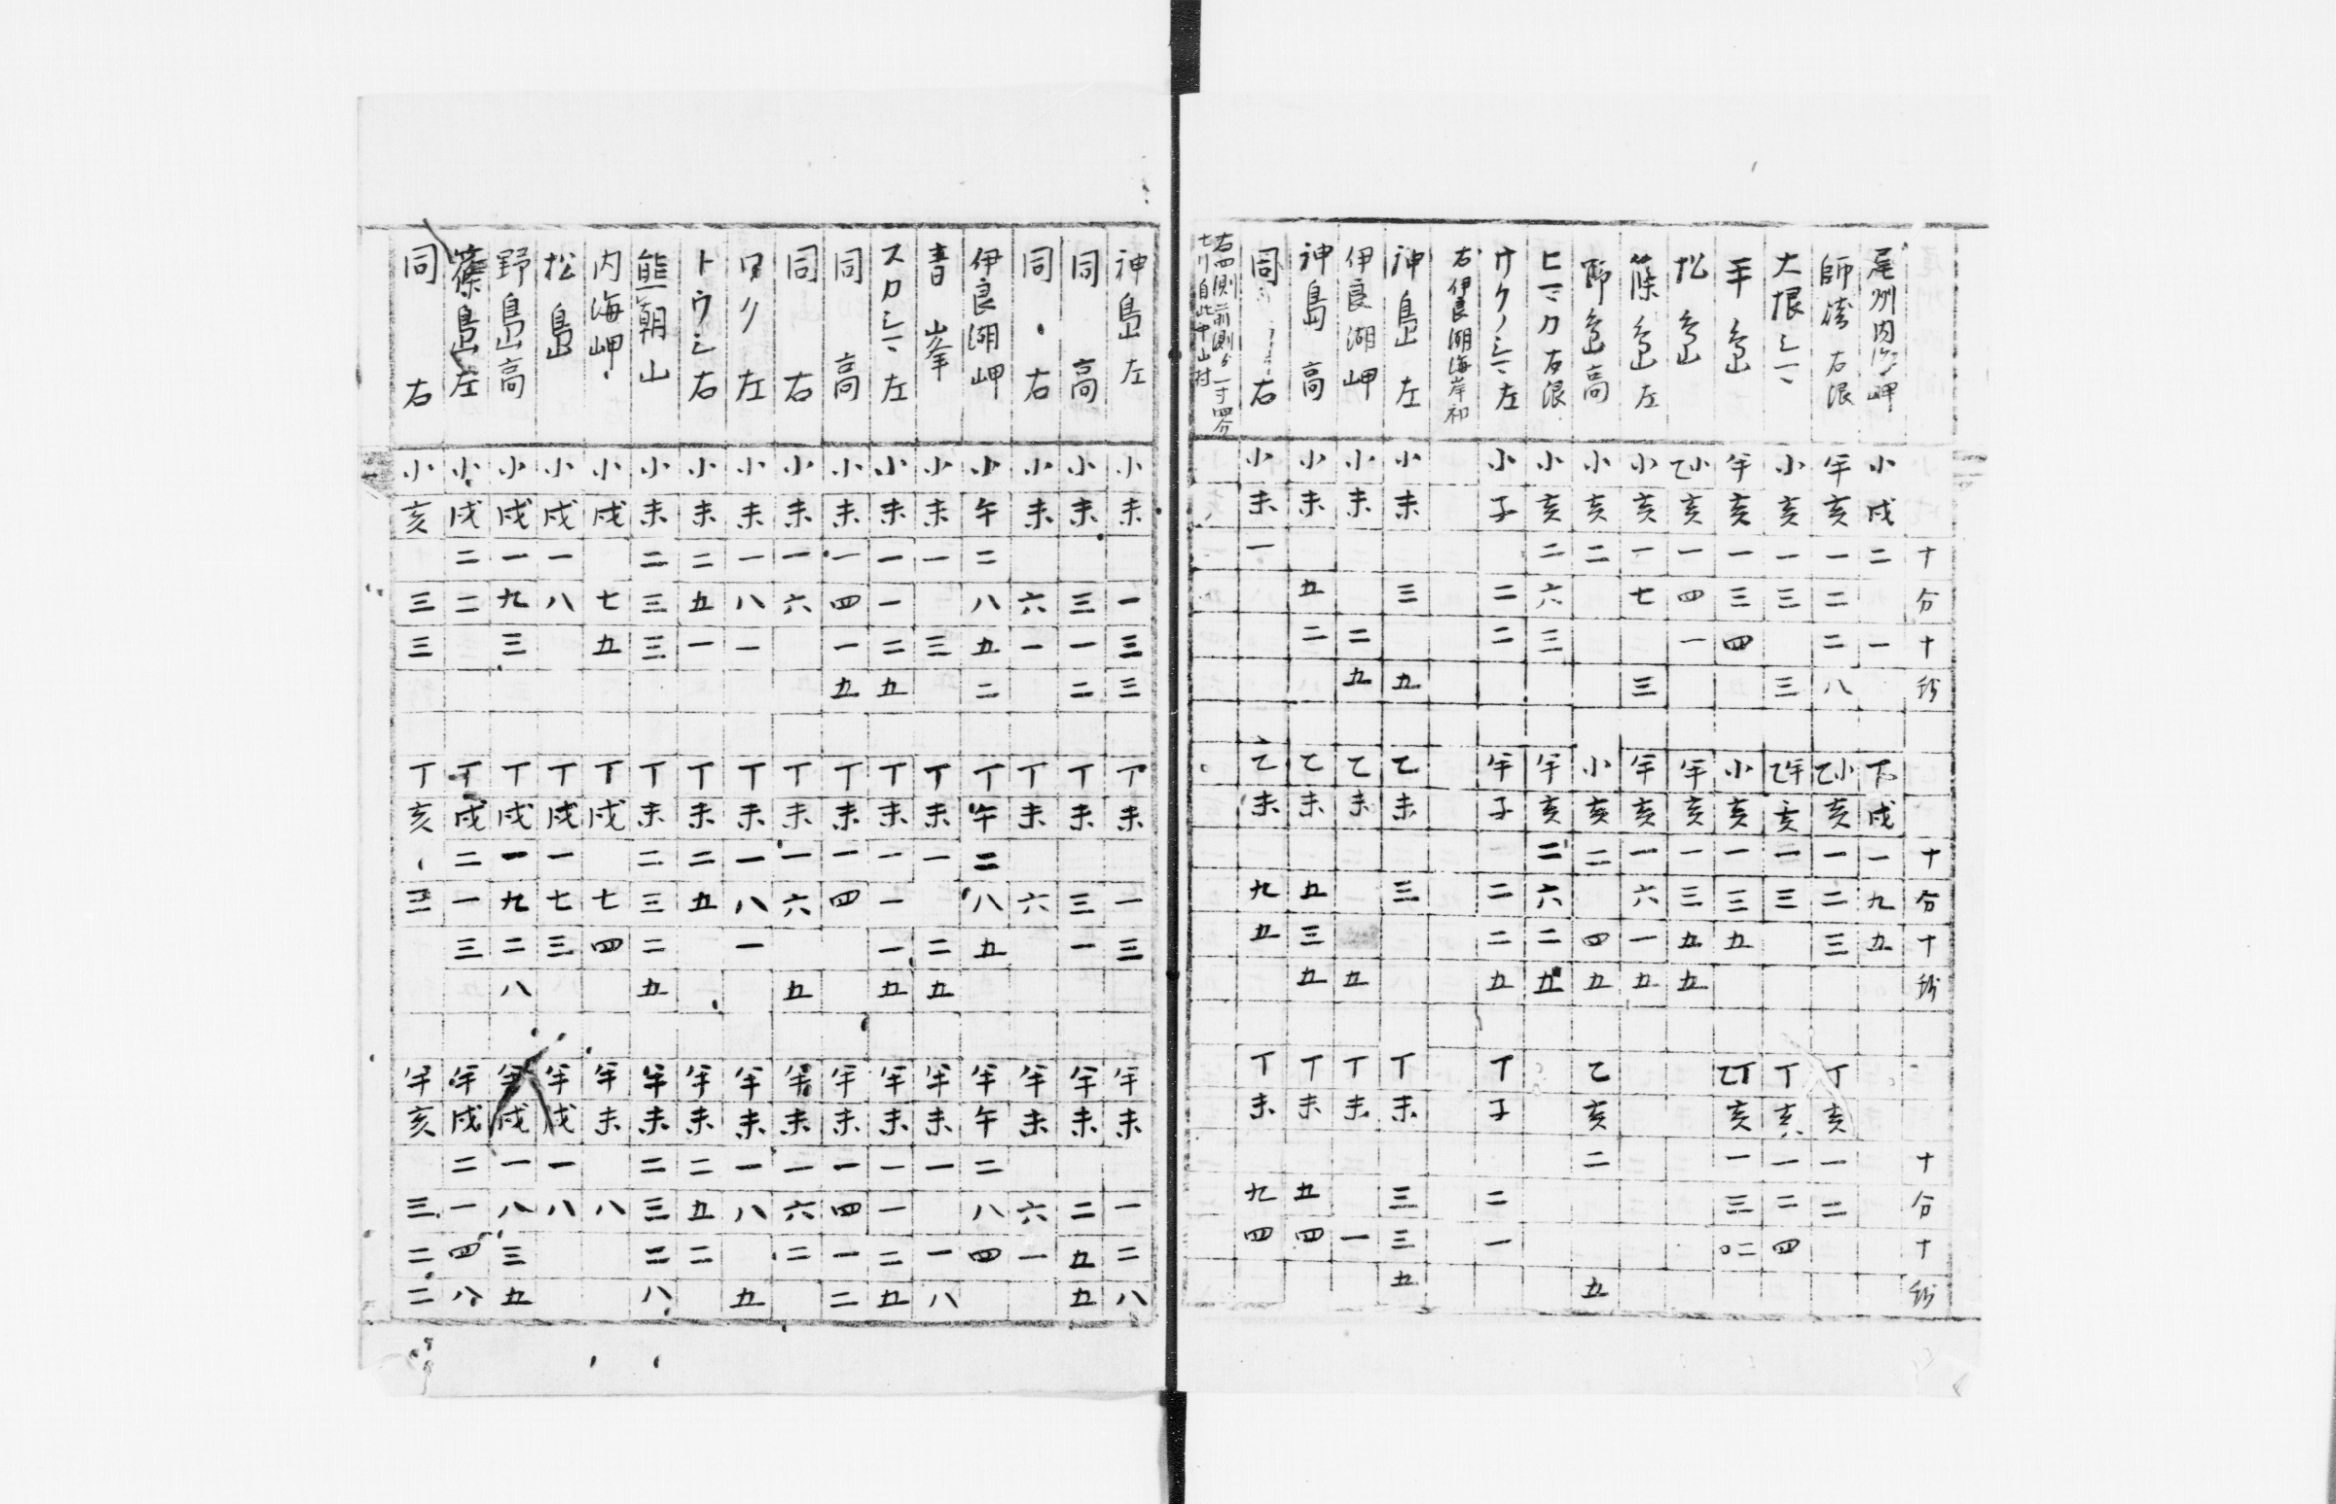 十分十秒 十分十秒 十分十秒
尾州内海岬 小戌二一 下戌一九五
師崎右限 半亥一二二八 乙小亥一二三 丁亥一二
大根シマ 小亥一三三 乙半亥一三 丁亥一二四
平島 半亥一三四 小亥一三五 乙丁亥一三二〇
松島 乙小亥一四一 半亥一三五五
篠島左 小亥一七三 半亥一六一五
野島高 小亥二 小亥二四五 乙亥二五
ヒマカ右限 小亥二六三 半亥二六二五
サクノシマ左 小子二二 半子二二五 丁子二一
右伊良湖海岸初
神島左 小未三五 乙未三 丁未三三五
伊良湖岬 小未二五 乙未五 丁未一
神島高 小未五二 乙未五三五 丁未五四
同右 小未一 乙未九五 丁未九四
右四測前測ゟ一寸四分
七リ自此中山村
神島左 小未一三三 丁未一三 半未一二八
同高 小未三一二 丁未三一 半未二五五
同右 小未六一 丁未六 半未六一
伊良湖岬 小午二八五二 丁午二八五 半午二八四
音山峯 小未一三 丁未一二五 半未一一八
スカシマ左 小未一一二五 丁未一一一五 半未一一二五
同高 小未一四一五 丁未一四 半未一四一二
同右 小未一六 丁未一六五 半未一六二
ワリ左 小未一八一 丁未一八一 半未一八五
トウシ右 小未二五一 丁未二五 半未二五二
熊朝山 小未二三三 丁未二三二五 半未二三二八
内海岬 小戌七五 丁戌七四 半未八
松島 小戌一八 丁戌一七三 半戌一八
野島高 小戌一九三 丁戌一九二八 半戌一八三五
篠島左 小戌二二 丁戌二一三 半戌二一四八
同右 小亥三三 丁亥三 半亥三二二